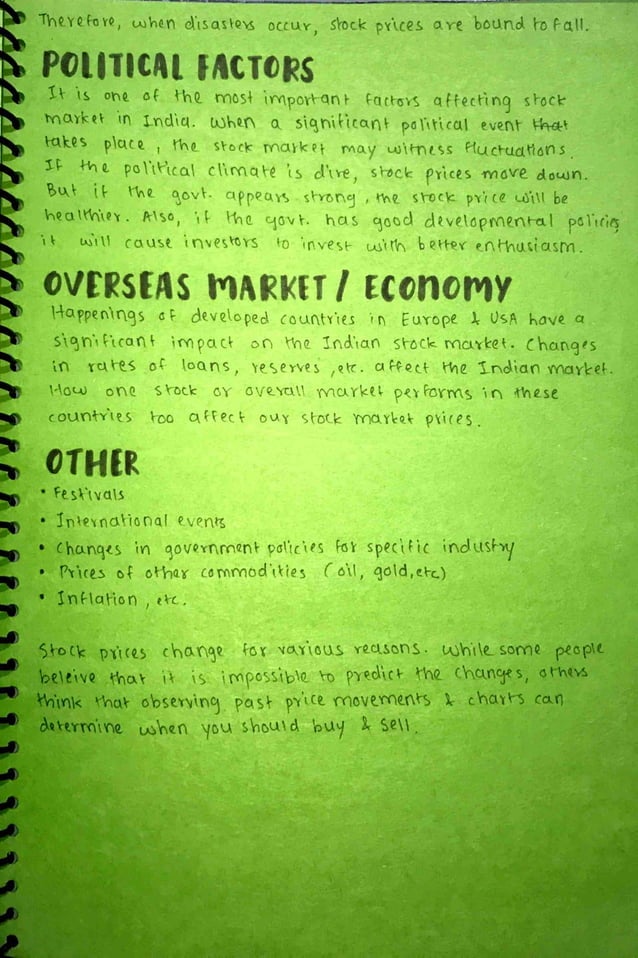 Therefore, when disasters occur, stock prices are bound to fall.
POLITICAL FACTORS
It is one of the most important factors affecting stock
market in India. When a significant political event that
takes place, the stock market may witness fluctuations.
If the political climate is dire, stock prices move down.
But if the govt. appears strong, the stock price will be
healthier. Also, if the govt. has good developmental policies
it will cause investors to invest with better enthusiasm.
OVERSEAS MARKET / ECONOMY
Happenings of developed countries in Europe & USA have a
significant impact on the Indian stock market. Changes
in rates of loans, reserves, etc. affect the Indian market.
How one stock or overall market performs in these
countries too affect our stock market prices.
OTHER
• Festivals
• International events
• Changes in government policies for specific industry
• Prices of other commodities (oil, gold, etc)
• Inflation, etc.
Stock prices change for various reasons. While some people
beleive that it is impossible to predict the changes, others
think that observing past price movements & charts can
determine when you should buy & sell.